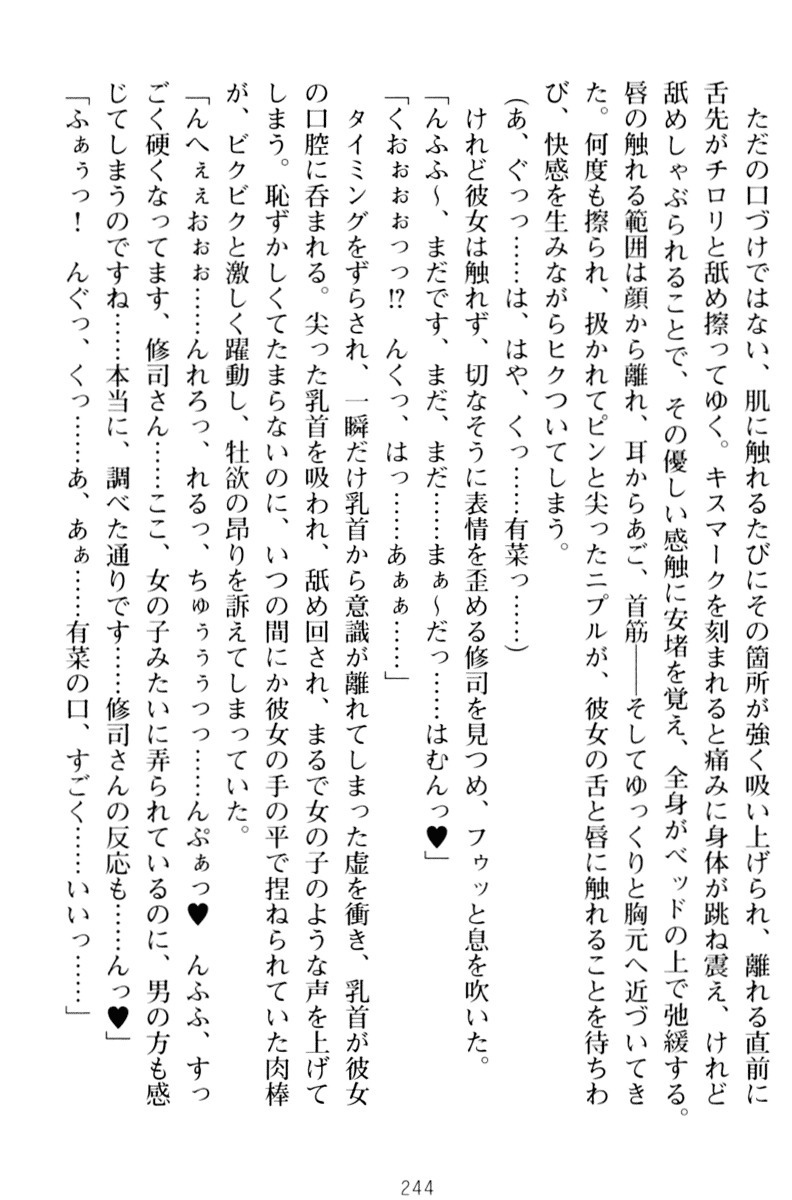 ただの口づけではない、肌に触れるたびにその箇所が強く吸い上げられ、離れる直前に
舌先がチロリと舐め擦ってゆく。キスマークを刻まれると痛みに身体が跳ね震え、けれど
舐めしゃぶられることで、その優しい感触に安堵を覚え、全身がベッドの上で弛緩する。
唇の触れる範囲は顔から離れ、耳からあご、首筋――そしてゆっくりと胸元へ近づいてき
た。何度も擦られ、扱かれてピンと尖ったニプルが、彼女の舌と唇に触れることを待ちわ
び、快感を生みながらヒクついてしまう。
(あ、ぐっっ……は、はや、くっ……有菜っ……)
けれど彼女は触れず、切なそうに表情を歪める修司を見つめ、フゥッと息を吹いた。
「んふふ～、まだです、まだ、まだ……まぁ～だっ……はむんっ♥」
「くおぉぉぉっっ!?　んくっ、はっ……あぁぁ……」
タイミングをずらされ、一瞬だけ乳首から意識が離れてしまった虚を衝き、乳首が彼女
の口腔に呑まれる。尖った乳首を吸われ、舐め回され、まるで女の子のような声を上げて
しまう。恥ずかしくてたまらないのに、いつの間にか彼女の手の平で捏ねられていた肉棒
が、ビクビクと激しく躍動し、牡欲の昂りを訴えてしまっていた。
「んへぇぇおぉぉ……んれろっ、れるっ、ちゅぅぅぅつっ……んぷぁっ♥　んふふ、すっ
ごく硬くなってます、修司さん……ここ、女の子みたいに弄られているのに、男の方も感
じてしまうのですね……本当に、調べた通りです……修司さんの反応も……んっ♥」
「ふぁぅっ！　んぐっ、くっ……あ、あぁ……有菜の口、すごく……いいっ……」
244